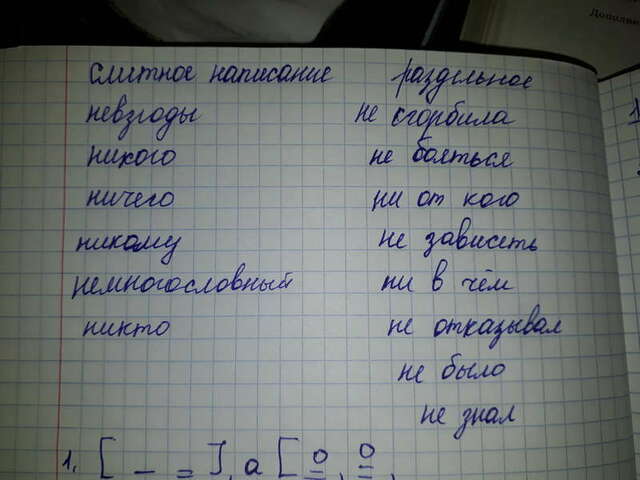 Слитное написание раздельное
невзгоды не сгорбила
никого не бояться
ничего ни от кого
никому не зависеть
немногословный ни в чём
никто не отказывал
не было
не знал
1. [ — = ], а [ О = , О = ]